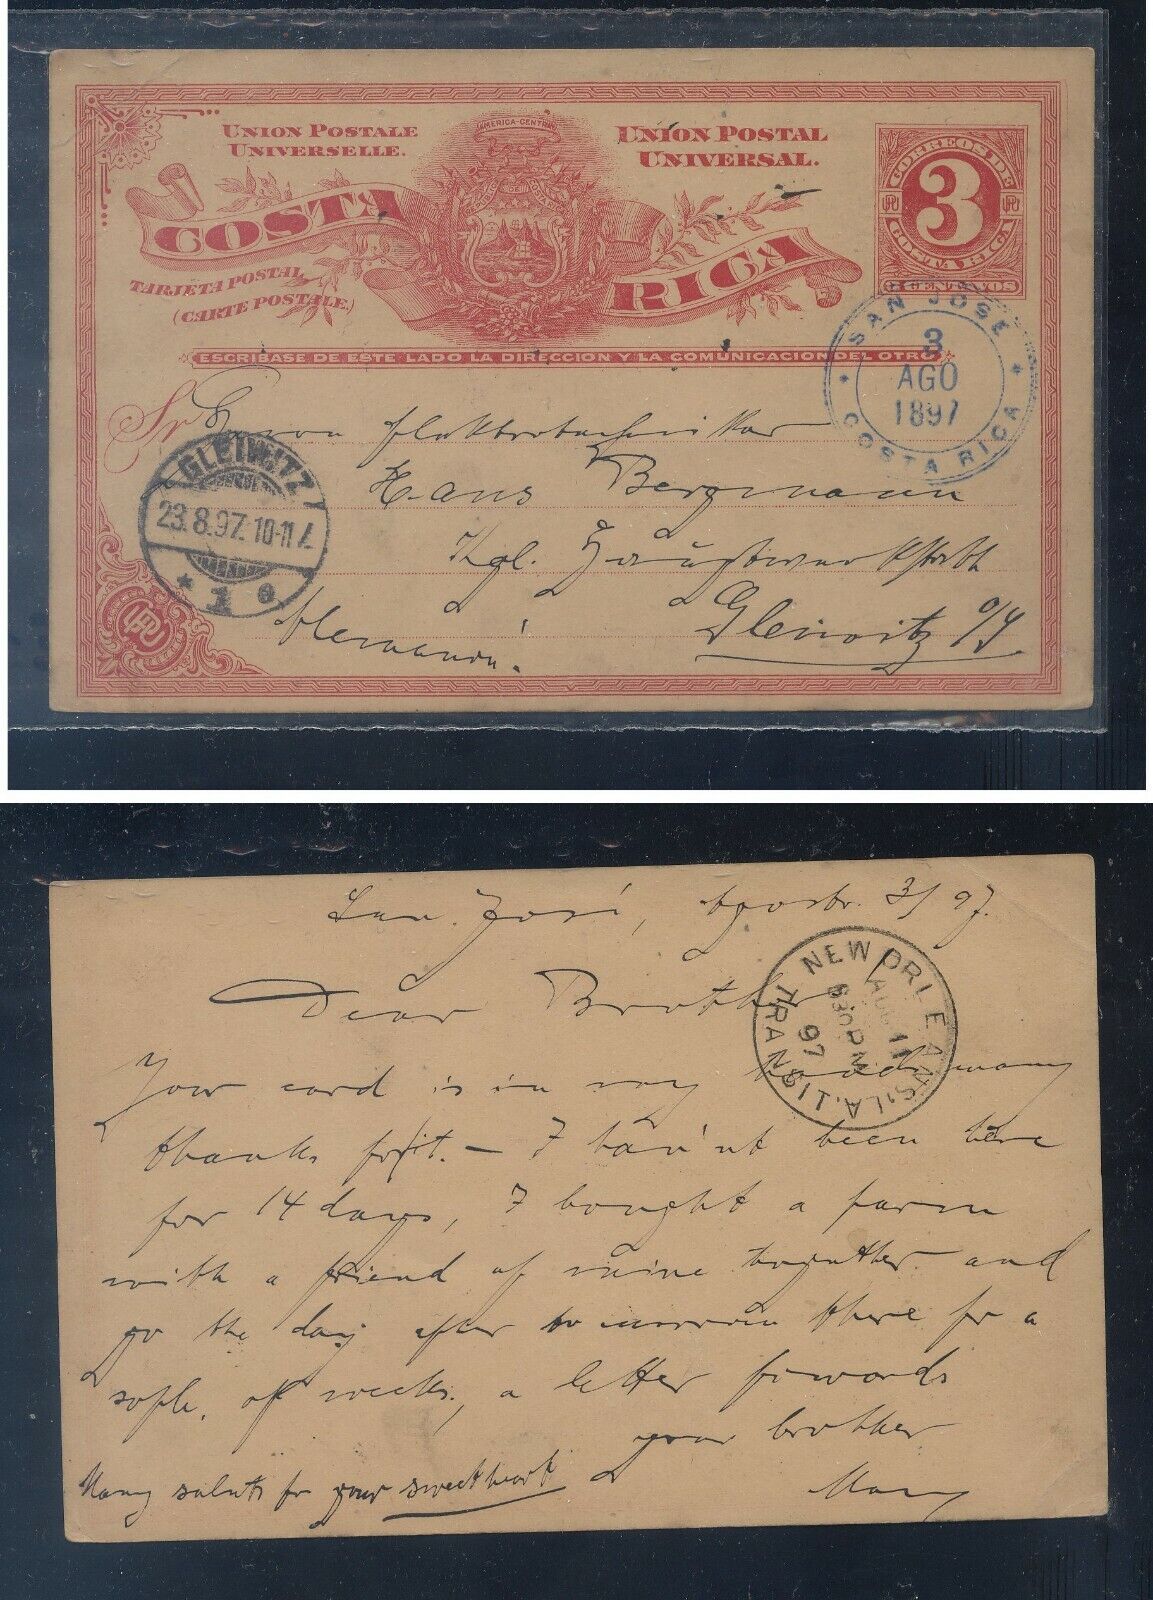 UNION POSTALE
UNIVERSELLE.
AMERICA-CENTRAL
UNION POSTAL
UNIVERSAL.
CORREOS DE
3
COSTA RICA
CENTAVOS
COSTA RICA
TARJETA POSTAL
(CARTE POSTALE.)
ESCRIBASE DE ESTE LADO LA DIRECCION Y LA COMUNICACION DEL OTRO
SAN JOSE
3
AGO
1897
COSTA RICA
Sr
Hans Bergmann
Kgl. Hauptwerkstatt
Gleiwitz o/S
GLEIWITZ
23.8.97.10-11
* 1 e
UPU
San José, 3/97.
Dear Brother
NEW ORLEANS, LA.
AUG 11
630PM
97
TRANSIT
Your card is in my hands many
thanks for it. – I hav'nt been here
for 14 days, I bought a farm
with a friend of mine togutther and
go the day after to morrow there for a
of weeks, a letter forwords
your brother
Many saluts for your sweetheart